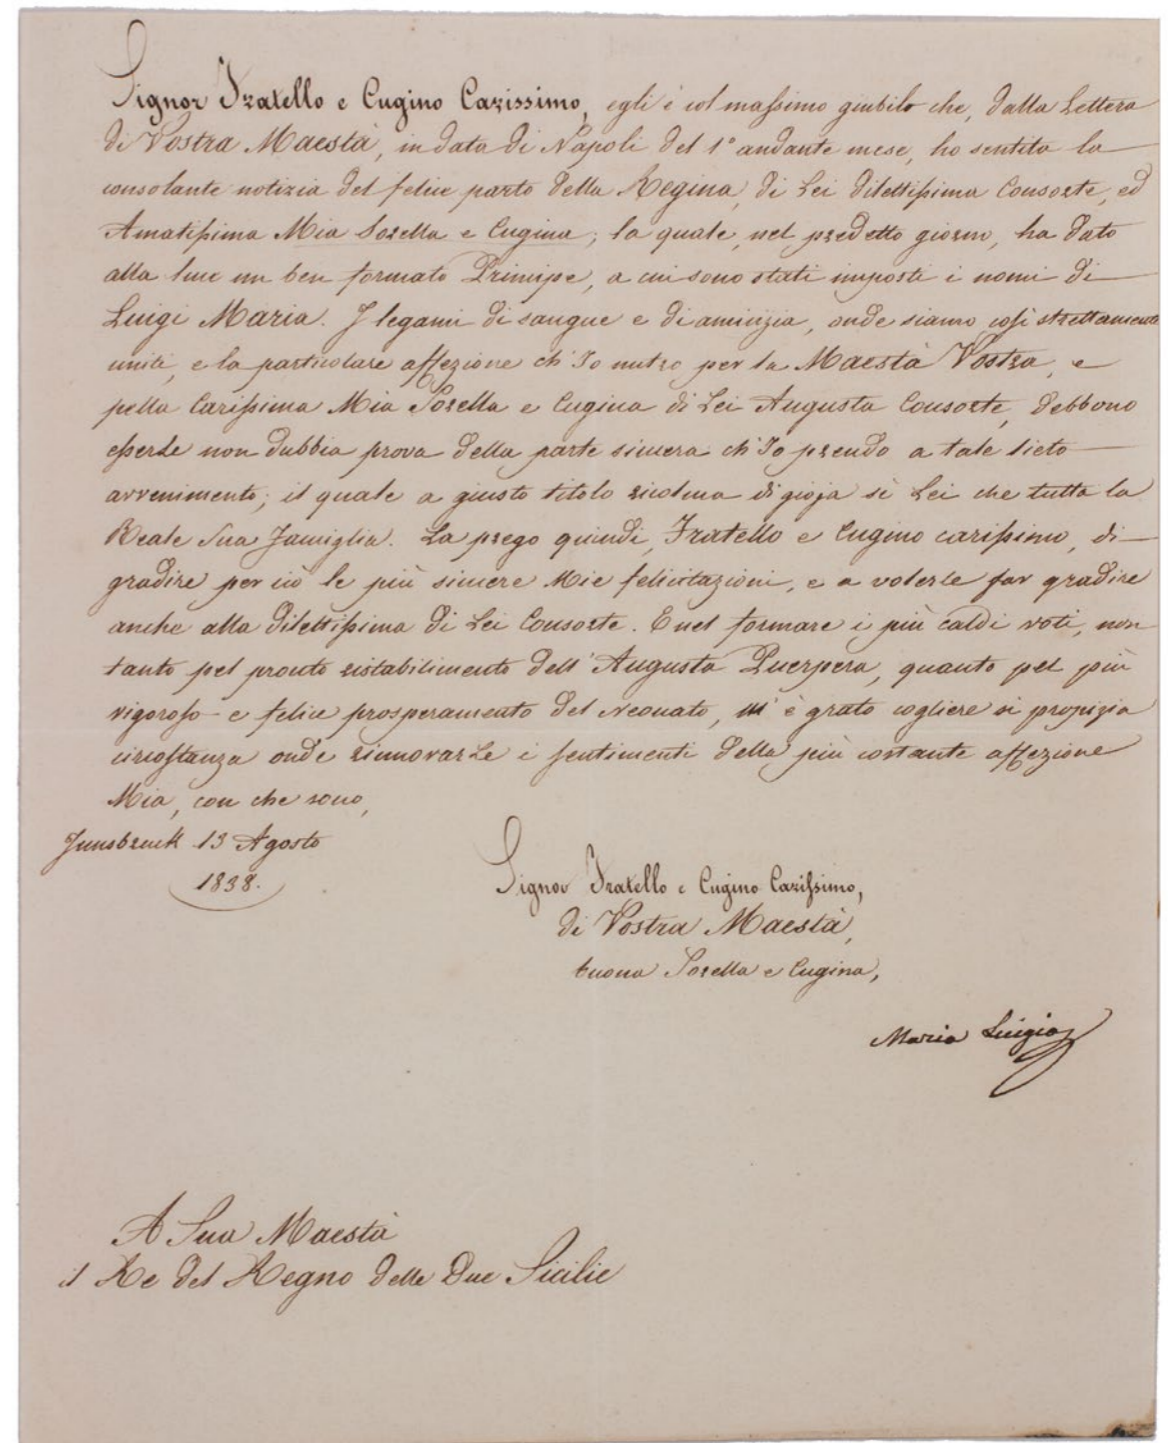 Signor Fratello e Cugino Carissimo, egli è col massimo giubilo che, dalla Lettera
di Vostra Maestà, in data di Napoli del 1° andante mese, ho sentita la
consolante notizia del felice parto della Regina, di Lei dilettissima Consorte, ed
Amatissima Mia Sorella e Cugina; la quale, nel predetto giorno, ha dato
alla luce un ben formato Principe, a cui sono stati imposti i nomi di
Luigi Maria. I legami di sangue e di amicizia, onde siamo così strettamente
uniti, e la particolare affezione ch'Io nutro per la Maestà Vostra, e
pella Carissima Mia Sorella e Cugina di Lei Augusta Consorte, debbono
esserle non dubbia prova della parte sincera ch'Io prendo a tale lieto
avvenimento; il quale a giusto titolo ricolma di gioja sì Lei che tutta la
Reale Sua Famiglia. La prego quindi, Fratello e Cugino carissimo, di
gradire per ciò le più sincere Mie felicitazioni, e a volerle far gradire
anche alla dilettissima di Lei Consorte. E nel formare i più caldi voti, non
tanto pel pronto ristabilimento dell'Augusta Puerpera, quanto pel più
vigoroso e felice prosperamento del Neonato, m'è grato cogliere sì propizia
circostanza onde rinnovarLe i sentimenti della più costante affezione
Mia, con che sono,
Innsbruck 13 Agosto
1838.
Signor Fratello e Cugino Carissimo,
di Vostra Maestà,
buona Sorella e Cugina,
Maria Luigia
A Sua Maestà
il Re del Regno delle Due Sicilie